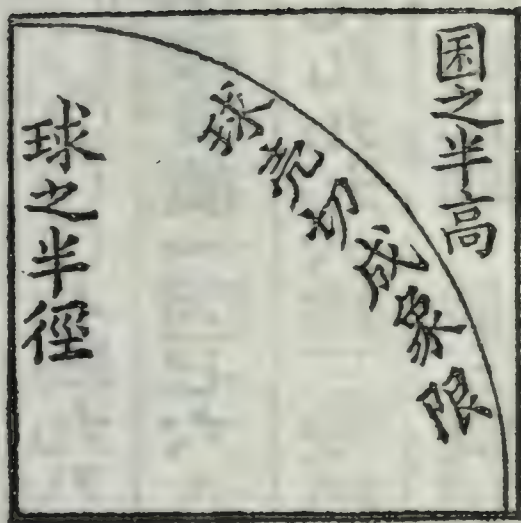 囷之半高
球壳切成象限
球之半徑